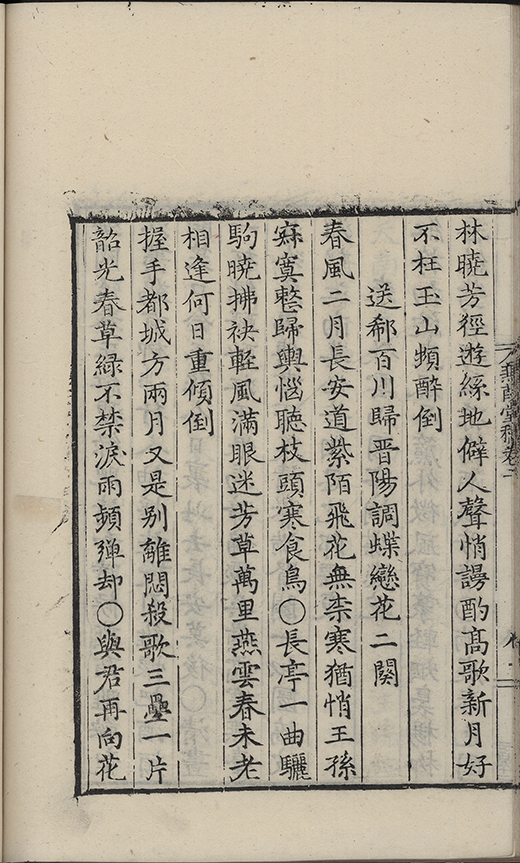 林曉芳徑遊絲地僻人聲悄謾酌高歌新月好
不枉玉山頻醉倒
送郗百川歸晋陽調蝶戀花二闋
春風二月長安道紫陌飛花無柰寒猶悄王孫
寂寞整歸輿惱聽枝頭寒食鳥〇長亭一曲驪
駒曉拂袂輕風滿眼迷芳草萬里燕雲春未老
相逢何日重傾倒
握手都城方兩月又是别離悶殺歌三疊一片
韶光春草綠不禁淚雨頻弾却〇與君再向花